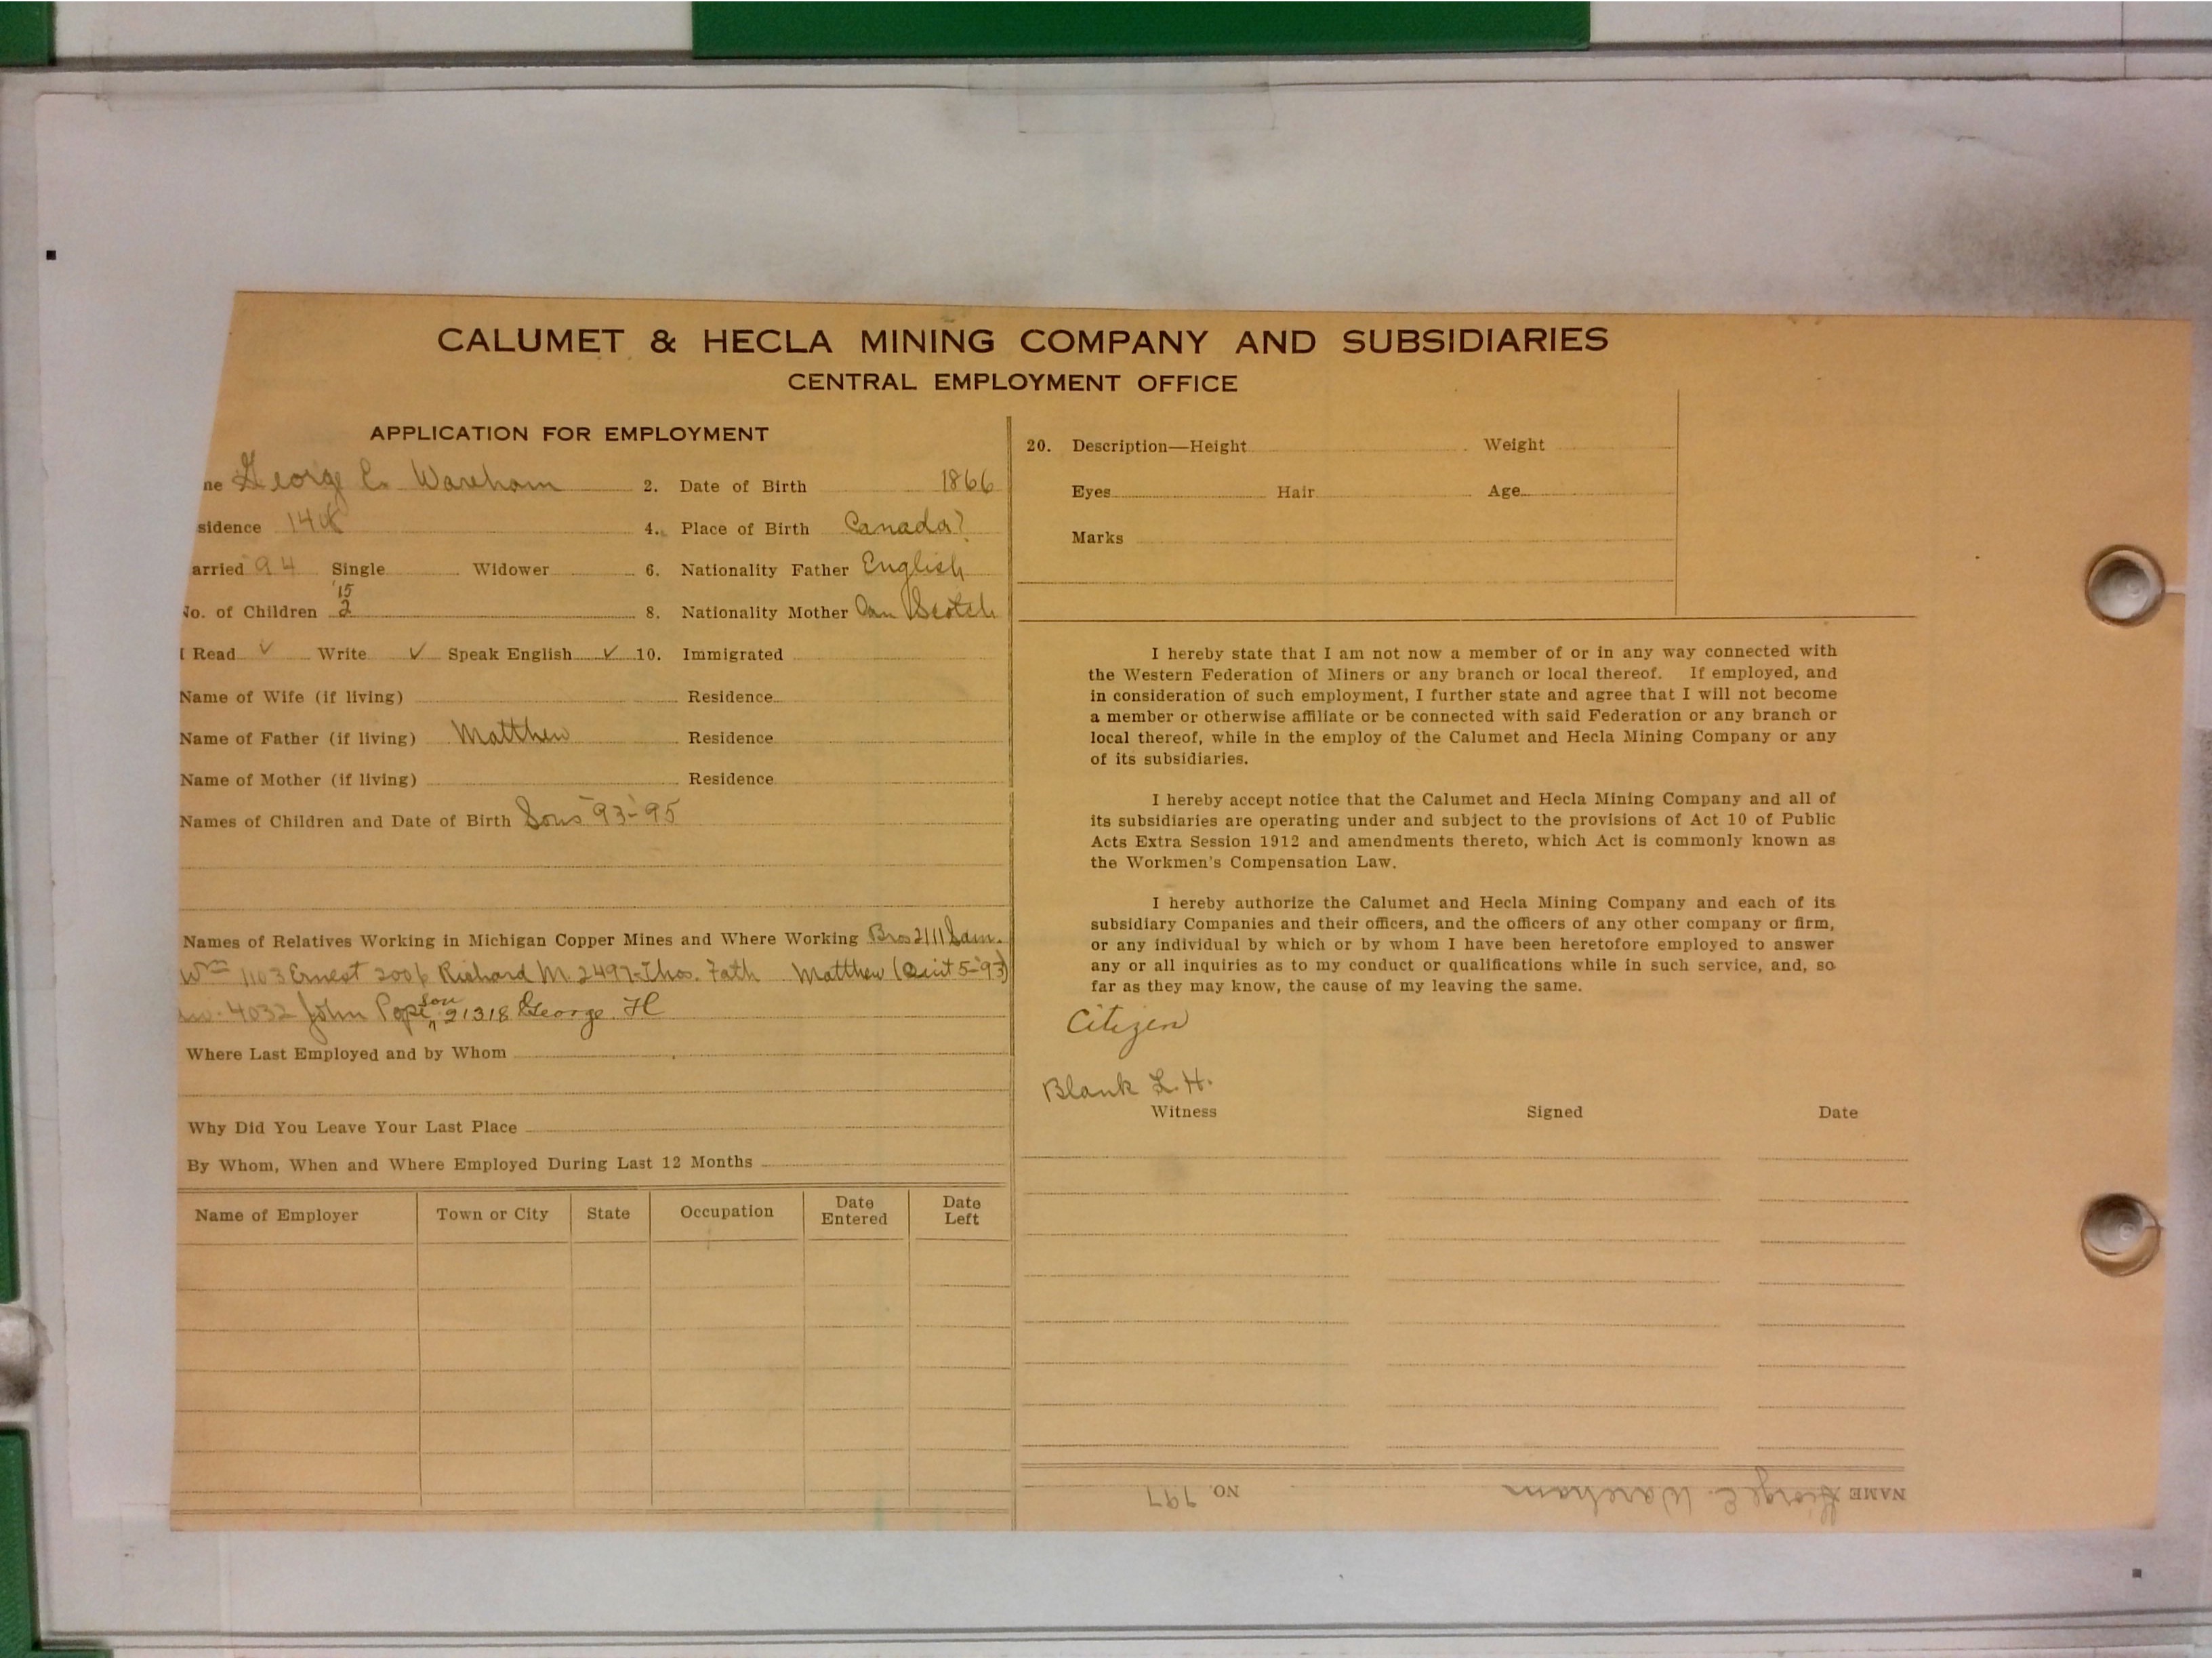 CALUMET & HECLA MINING COMPANY AND SUBSIDIARIES
CENTRAL EMPLOYMENT OFFICE
APPLICATION FOR EMPLOYMENT
ne George E. Wareham 2. Date of Birth 1866
sidence 4. Place of Birth Canada?
arried 94 Single Widower 6. Nationality Father English
'15
No. of Children 2 8. Nationality Mother Can Scotch
Read ✓ Write ✓ Speak English ✓ 10. Immigrated
Name of Wife (if living) Residence
Name of Father (if living) Matthew Residence
Name of Mother (if living) Residence
Names of Children and Date of Birth Sons '93-'95
Names of Relatives Working in Michigan Copper Mines and Where Working Bros 2111 Sam.
Wm 1103 Ernest 2006 Richard M. 2497-Thos. Fath Matthew (Quit 5-'93)
4032 John Pope son 21318 George H
Where Last Employed and by Whom
Why Did You Leave Your Last Place
By Whom, When and Where Employed During Last 12 Months
Name of Employer Town or City State Occupation Date Entered Date Left
20. Description—Height Weight
Eyes Hair Age
Marks
I hereby state that I am not now a member of or in any way connected with
the Western Federation of Miners or any branch or local thereof. If employed, and
in consideration of such employment, I further state and agree that I will not become
a member or otherwise affiliate or be connected with said Federation or any branch or
local thereof, while in the employ of the Calumet and Hecla Mining Company or any
of its subsidiaries.
I hereby accept notice that the Calumet and Hecla Mining Company and all of
its subsidiaries are operating under and subject to the provisions of Act 10 of Public
Acts Extra Session 1912 and amendments thereto, which Act is commonly known as
the Workmen's Compensation Law.
I hereby authorize the Calumet and Hecla Mining Company and each of its
subsidiary Companies and their officers, and the officers of any other company or firm,
or any individual by which or by whom I have been heretofore employed to answer
any or all inquiries as to my conduct or qualifications while in such service, and, so
far as they may know, the cause of my leaving the same.
Citizen
Blank L.H.
Witness Signed Date
NAME George E. Wareham NO. 797